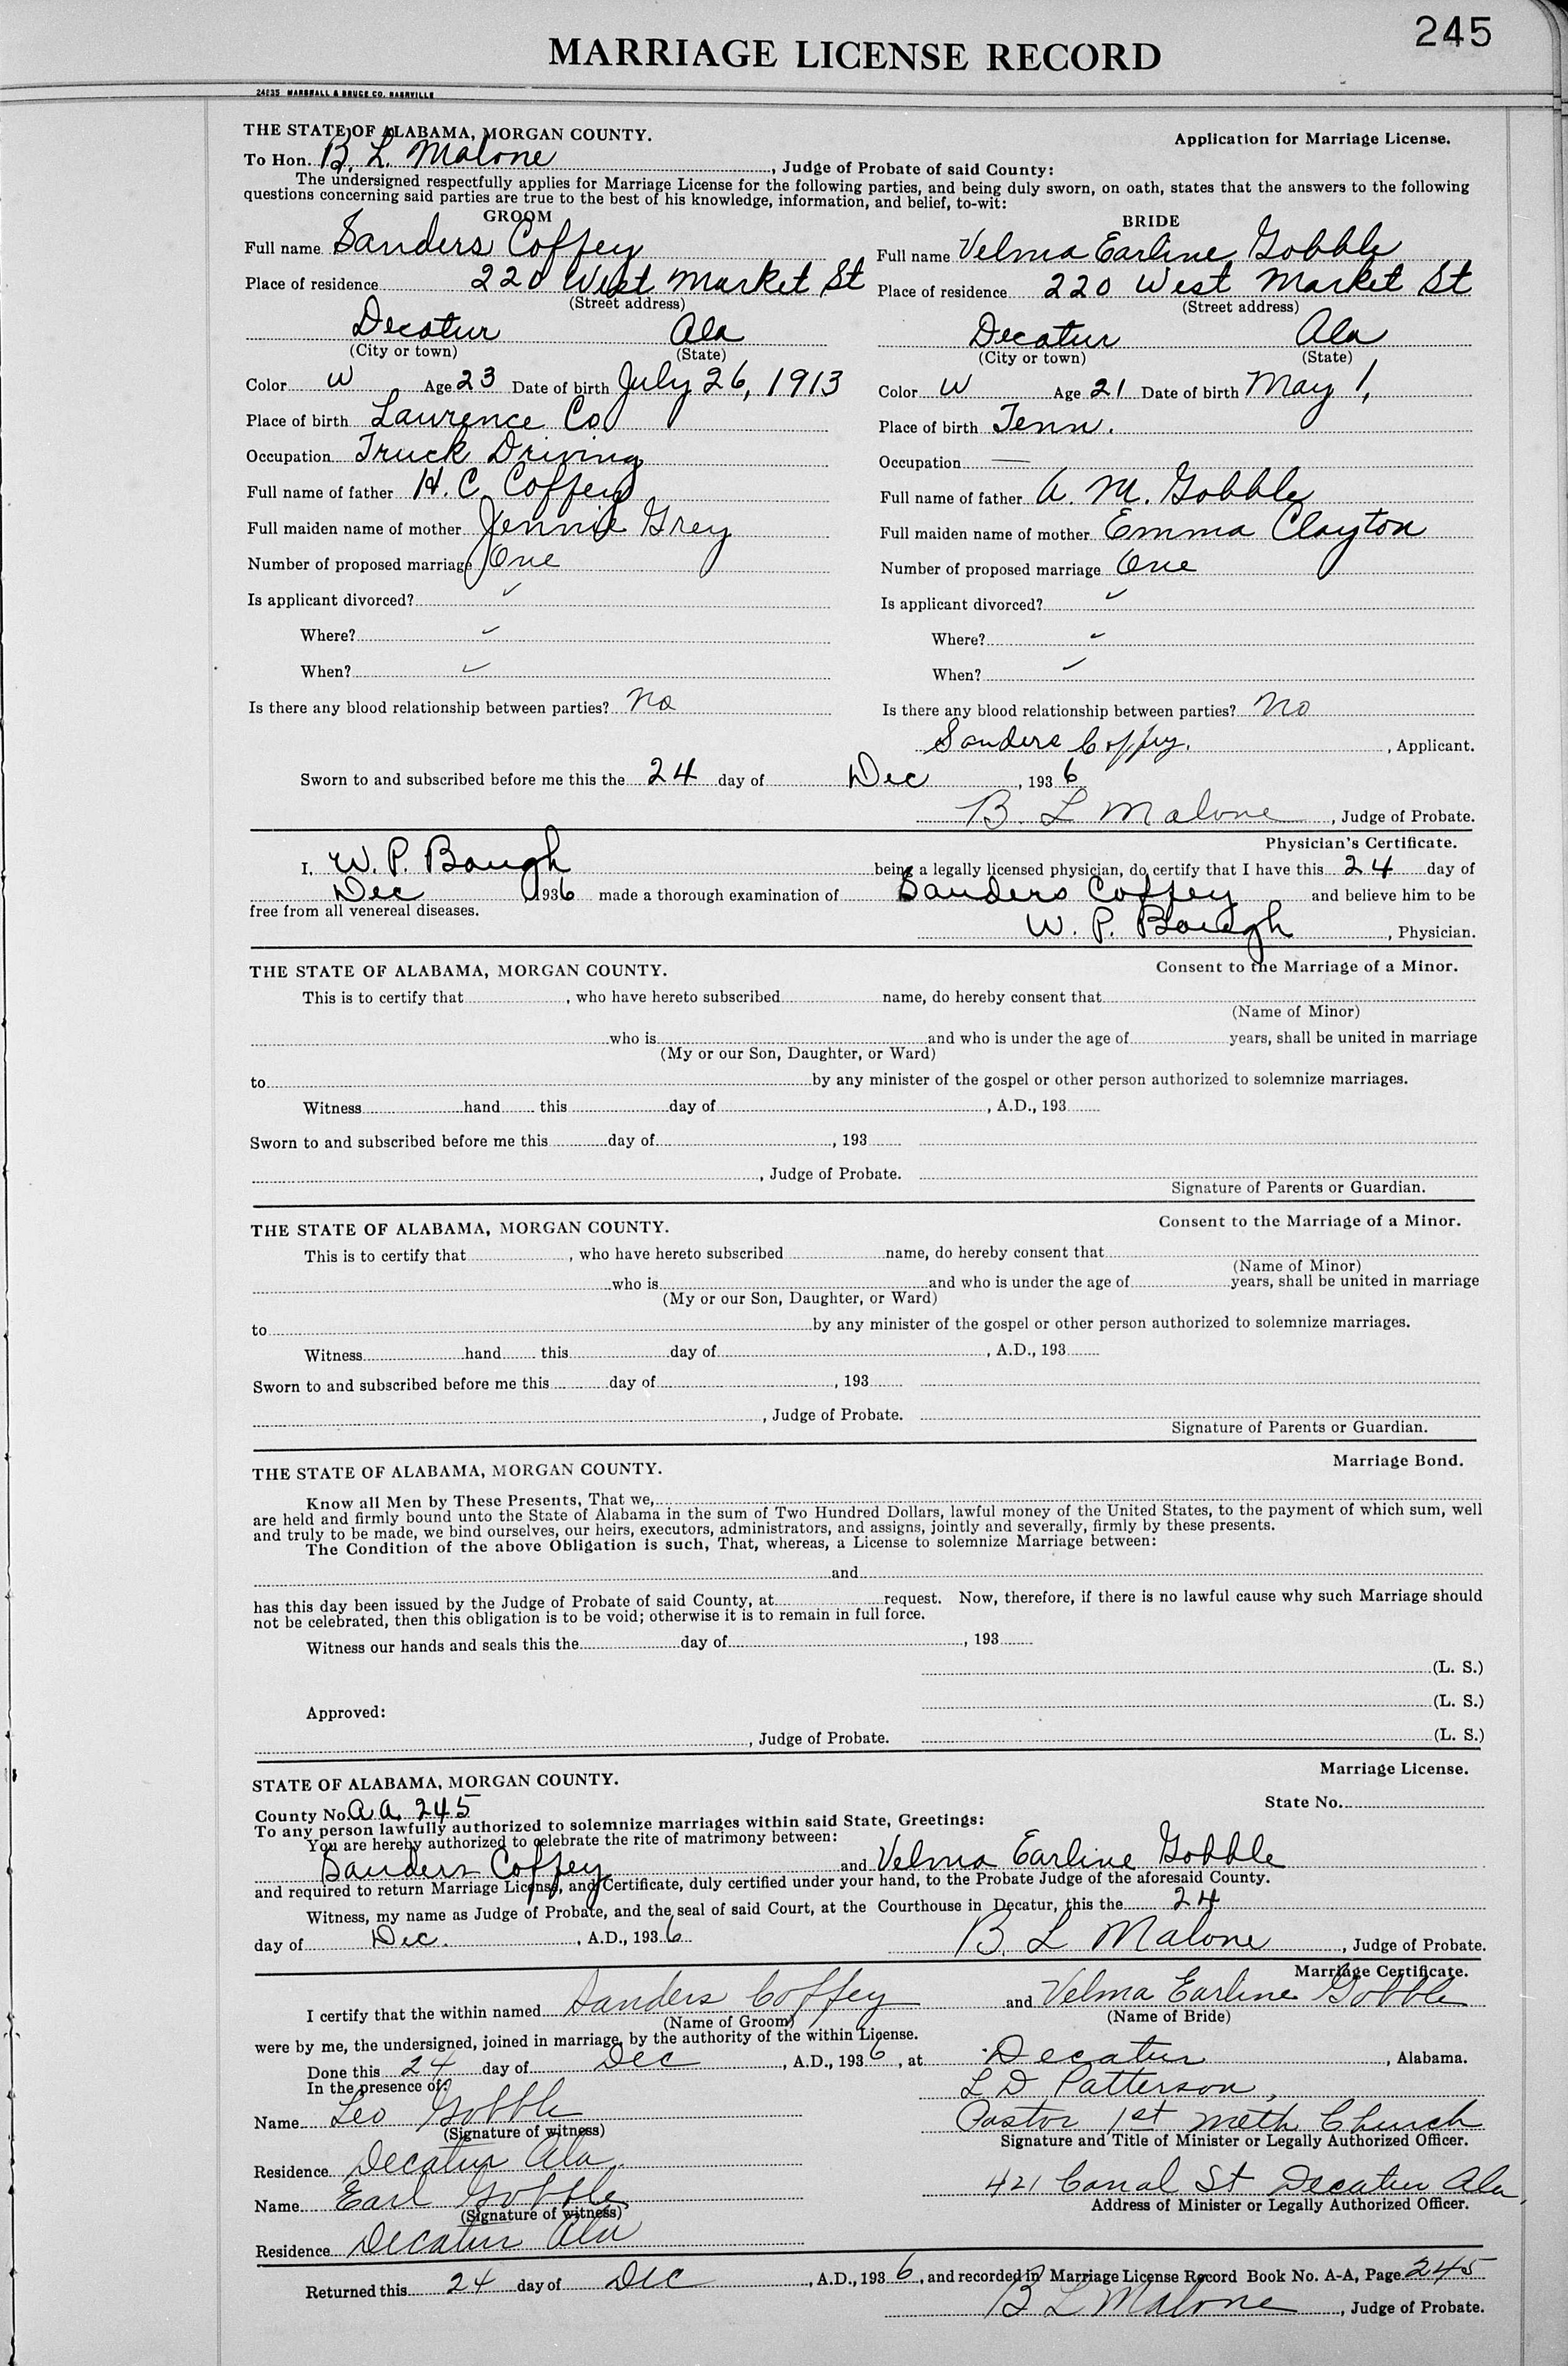 245
MARRIAGE LICENSE RECORD
24835 MARSHALL & BRUCE CO. NASHVILLE
THE STATE OF ALABAMA, MORGAN COUNTY.
Application for Marriage License.
To Hon. B. L. Malone, Judge of Probate of said County:
The undersigned respectfully applies for Marriage License for the following parties, and being duly sworn, on oath, states that the answers to the following
questions concerning said parties are true to the best of his knowledge, information, and belief, to-wit:
GROOM
Full name Sanders Coffey
Place of residence 220 West Market St
(Street address)
Decatur Ala
(City or town) (State)
Color W Age 23 Date of birth July 26, 1913
Place of birth Lawrence Co
Occupation Truck Driving
Full name of father H. C. Coffey
Full maiden name of mother Jennie Grey
Number of proposed marriage One
Is applicant divorced?
Where?
When?
Is there any blood relationship between parties? No
BRIDE
Full name Velma Earline Gobble
Place of residence 220 West Market St
(Street address)
Decatur Ala
(City or town) (State)
Color W Age 21 Date of birth May 1,
Place of birth Tenn.
Occupation —
Full name of father A. M. Gobble
Full maiden name of mother Emma Clayton
Number of proposed marriage One
Is applicant divorced?
Where?
When?
Is there any blood relationship between parties? No
Sanders Coffey, Applicant.
Sworn to and subscribed before me this the 24 day of Dec, 1936
B. L Malone, Judge of Probate.
Physician's Certificate.
I, W. P. Baugh being a legally licensed physician, do certify that I have this 24 day of
Dec 1936 made a thorough examination of Sanders Coffey and believe him to be
free from all venereal diseases.
W. P. Baugh, Physician.
THE STATE OF ALABAMA, MORGAN COUNTY.
Consent to the Marriage of a Minor.
This is to certify that , who have hereto subscribed name, do hereby consent that
(Name of Minor)
who is and who is under the age of years, shall be united in marriage
(My or our Son, Daughter, or Ward)
to by any minister of the gospel or other person authorized to solemnize marriages.
Witness hand this day of , A.D., 193
Sworn to and subscribed before me this day of , 193
, Judge of Probate.
Signature of Parents or Guardian.
THE STATE OF ALABAMA, MORGAN COUNTY.
Consent to the Marriage of a Minor.
This is to certify that , who have hereto subscribed name, do hereby consent that
(Name of Minor)
who is and who is under the age of years, shall be united in marriage
(My or our Son, Daughter, or Ward)
to by any minister of the gospel or other person authorized to solemnize marriages.
Witness hand this day of , A.D., 193
Sworn to and subscribed before me this day of , 193
, Judge of Probate.
Signature of Parents or Guardian.
THE STATE OF ALABAMA, MORGAN COUNTY.
Marriage Bond.
Know all Men by These Presents, That we,
are held and firmly bound unto the State of Alabama in the sum of Two Hundred Dollars, lawful money of the United States, to the payment of which sum, well
and truly to be made, we bind ourselves, our heirs, executors, administrators, and assigns, jointly and severally, firmly by these presents.
The Condition of the above Obligation is such, That, whereas, a License to solemnize Marriage between:
and
has this day been issued by the Judge of Probate of said County, at request. Now, therefore, if there is no lawful cause why such Marriage should
not be celebrated, then this obligation is to be void; otherwise it is to remain in full force.
Witness our hands and seals this the day of , 193
(L. S.)
(L. S.)
Approved:
, Judge of Probate. (L. S.)
STATE OF ALABAMA, MORGAN COUNTY.
Marriage License.
County No. A A. 245
State No.
To any person lawfully authorized to solemnize marriages within said State, Greetings:
You are hereby authorized to celebrate the rite of matrimony between:
Sanders Coffey and Velma Earline Gobble
and required to return Marriage License, and Certificate, duly certified under your hand, to the Probate Judge of the aforesaid County.
Witness, my name as Judge of Probate, and the seal of said Court, at the Courthouse in Decatur, this the 24
day of Dec. , A.D., 1936 B. L Malone, Judge of Probate.
Marriage Certificate.
I certify that the within named Sanders Coffey and Velma Earline Gobble
(Name of Groom) (Name of Bride)
were by me, the undersigned, joined in marriage, by the authority of the within License.
Done this 24 day of Dec , A.D., 1936, at Decatur, Alabama.
In the presence of:
L D Patterson,
Name Leo Gobble Pastor 1st Meth Church
(Signature of witness) Signature and Title of Minister or Legally Authorized Officer.
Residence Decatur Ala.
421 Canal St Decatur Ala,
Name Earl Gobble Address of Minister or Legally Authorized Officer.
(Signature of witness)
Residence Decatur Ala
Returned this 24 day of Dec , A.D., 1936, and recorded in Marriage License Record Book No. A-A, Page 245
B L Malone, Judge of Probate.